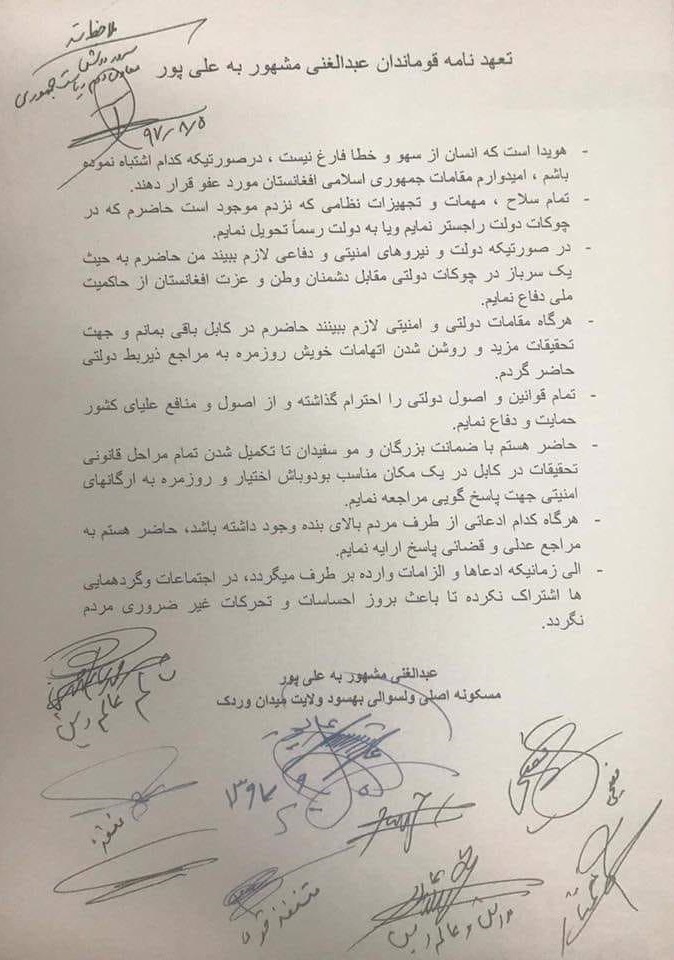 ملاحظه شد
سرور دانش
معاون دوم ریاست جمهوری
۹۷/۸/۵
تعهد نامه قوماندان عبدالغنی مشهور به علی پور
- هویدا است که انسان از سهو و خطا فارغ نیست ، درصورتیکه کدام اشتباه نموده
باشم ، امیدوارم مقامات جمهوری اسلامی افغانستان مورد عفو قرار دهند.
- تمام سلاح ، مهمات و تجهیزات نظامی که نزدم موجود است حاضرم که در
چوکات دولت راجستر نمایم ویا به دولت رسماً تحویل نمایم.
- در صورتیکه دولت و نیروهای امنیتی و دفاعی لازم ببیند من حاضرم به حیث
یک سرباز در چوکات دولتی مقابل دشمنان وطن و عزت افغانستان از حاکمیت
ملی دفاع نمایم.
- هرگاه مقامات دولتی و امنیتی لازم ببینند حاضرم در کابل باقی بمانم و جهت
تحقیقات مزید و روشن شدن اتهامات خویش روزمره به مراجع ذیربط دولتی
حاضر گردم.
- تمام قوانین و اصول دولتی را احترام گذاشته و از اصول و منافع علیای کشور
حمایت و دفاع نمایم.
- حاضر هستم با ضمانت بزرگان و مو سفیدان تا تکمیل شدن تمام مراحل قانونی
تحقیقات در کابل در یک مکان مناسب بودوباش اختیار و روزمره به ارگانهای
امنیتی جهت پاسخ گویی مراجعه نمایم.
- هرگاه کدام ادعائی از طرف مردم بالای بنده وجود داشته باشد، حاضر هستم به
مراجع عدلی و قضائی پاسخ ارایه نمایم.
- الی زمانیکه ادعاها و الزامات وارده بر طرف میگردد، در اجتماعات وگردهمایی
ها اشتراک نکرده تا باعث بروز احساسات و تحرکات غیر ضروری مردم
نگردد.
عبدالغنی مشهور به علی پور
مسکونه اصلی ولسوالی بهسود ولایت میدان وردک